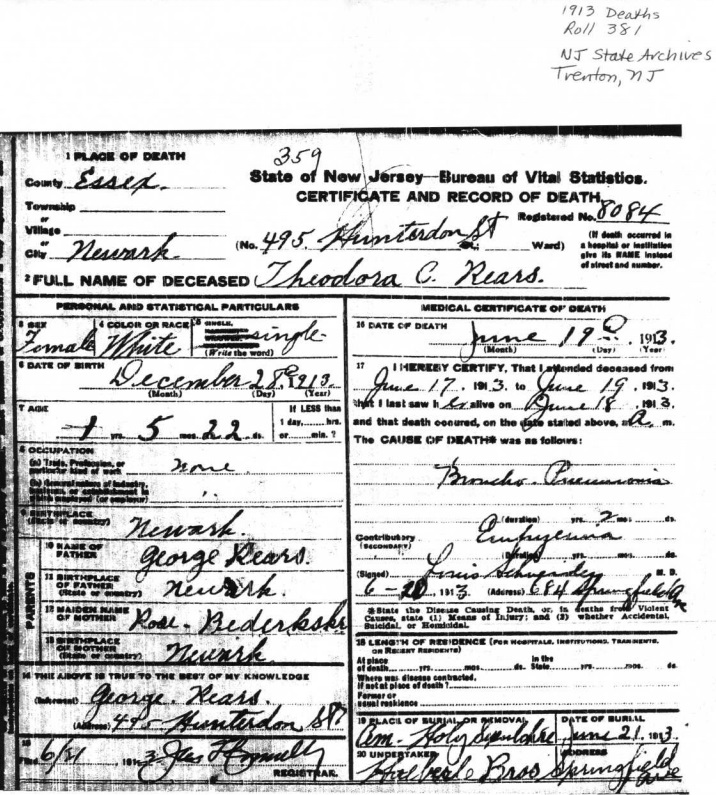 1913 Deaths
Roll 381
NJ State Archives
Trenton, NJ
359
1 PLACE OF DEATH
County Essex.
Township
or
Village
or
City Newark.
State of New Jersey—Bureau of Vital Statistics.
CERTIFICATE AND RECORD OF DEATH
Registered No. 8084
(No. 495 Hunterdon St Ward)
(If death occurred in
a hospital or institution
give its NAME instead
of street and number.
2 FULL NAME OF DECEASED Theodora C. Rears.
PERSONAL AND STATISTICAL PARTICULARS
3 SEX
Female
4 COLOR OR RACE
White
5 SINGLE,
single
(Write the word)
6 DATE OF BIRTH
December 28
(Month) (Day) (Year)
7 AGE
1 yrs. 5 mos. 22 ds.
If LESS than
1 day,.....hrs.
or.....min.?
8 OCCUPATION
(a) Trade, Profession, or
particular kind of work none
(b) General nature of industry,
business, or establishment in
which employed (or employer)
9 BIRTHPLACE
(State or country)
Newark.
PARENTS
10 NAME OF
FATHER
George Rears.
11 BIRTHPLACE
OF FATHER
(State or country)
Newark.
12 MAIDEN NAME
OF MOTHER
Rose
13 BIRTHPLACE
OF MOTHER
(State or country)
Newark
14 THE ABOVE IS TRUE TO THE BEST OF MY KNOWLEDGE
(Informant) George Rears.
(Address) 495 Hunterdon St
15
Filed 6/21 1913
REGISTRAR.
MEDICAL CERTIFICATE OF DEATH
16 DATE OF DEATH
June 19 1913.
(Month) (Day) (Year)
17 I HEREBY CERTIFY, That I attended deceased from
June 17. 1913. to June 19. 1913.
that I last saw her alive on June 18. 1913.
and that death occured, on the date stated above, at A. m.
The CAUSE OF DEATH* was as follows:
Broncho-Pneumonia
(duration) yrs. 2 mos. ds.
Contributory Empyema
(SECONDARY)
(Duration) yrs. mos. ds.
(Signed) Louis M. D.
6-20, 1913. (Address) 684 Springfield Av
*State the Disease Causing Death, or, in deaths from Violent
Causes, state (1) Means of Injury; and (2) whether Accidental,
Suicidal, or Homicidal.
18 LENGTH OF RESIDENCE (FOR HOSPITALS, INSTITUTIONS, TRANSIENTS,
OR RECENT RESIDENTS)
At place
of death.....yrs.....mos.....ds.
In the
State.....yrs.....mos.....ds.
Where was disease contracted,
if not at place of death?
Former or
usual residence
19 PLACE OF BURIAL OR REMOVAL
Cem. Holy Sepulchre
DATE OF BURIAL
June 21. 1913.
20 UNDERTAKER
Haeberle Bros
ADDRESS
Springfield
Ave